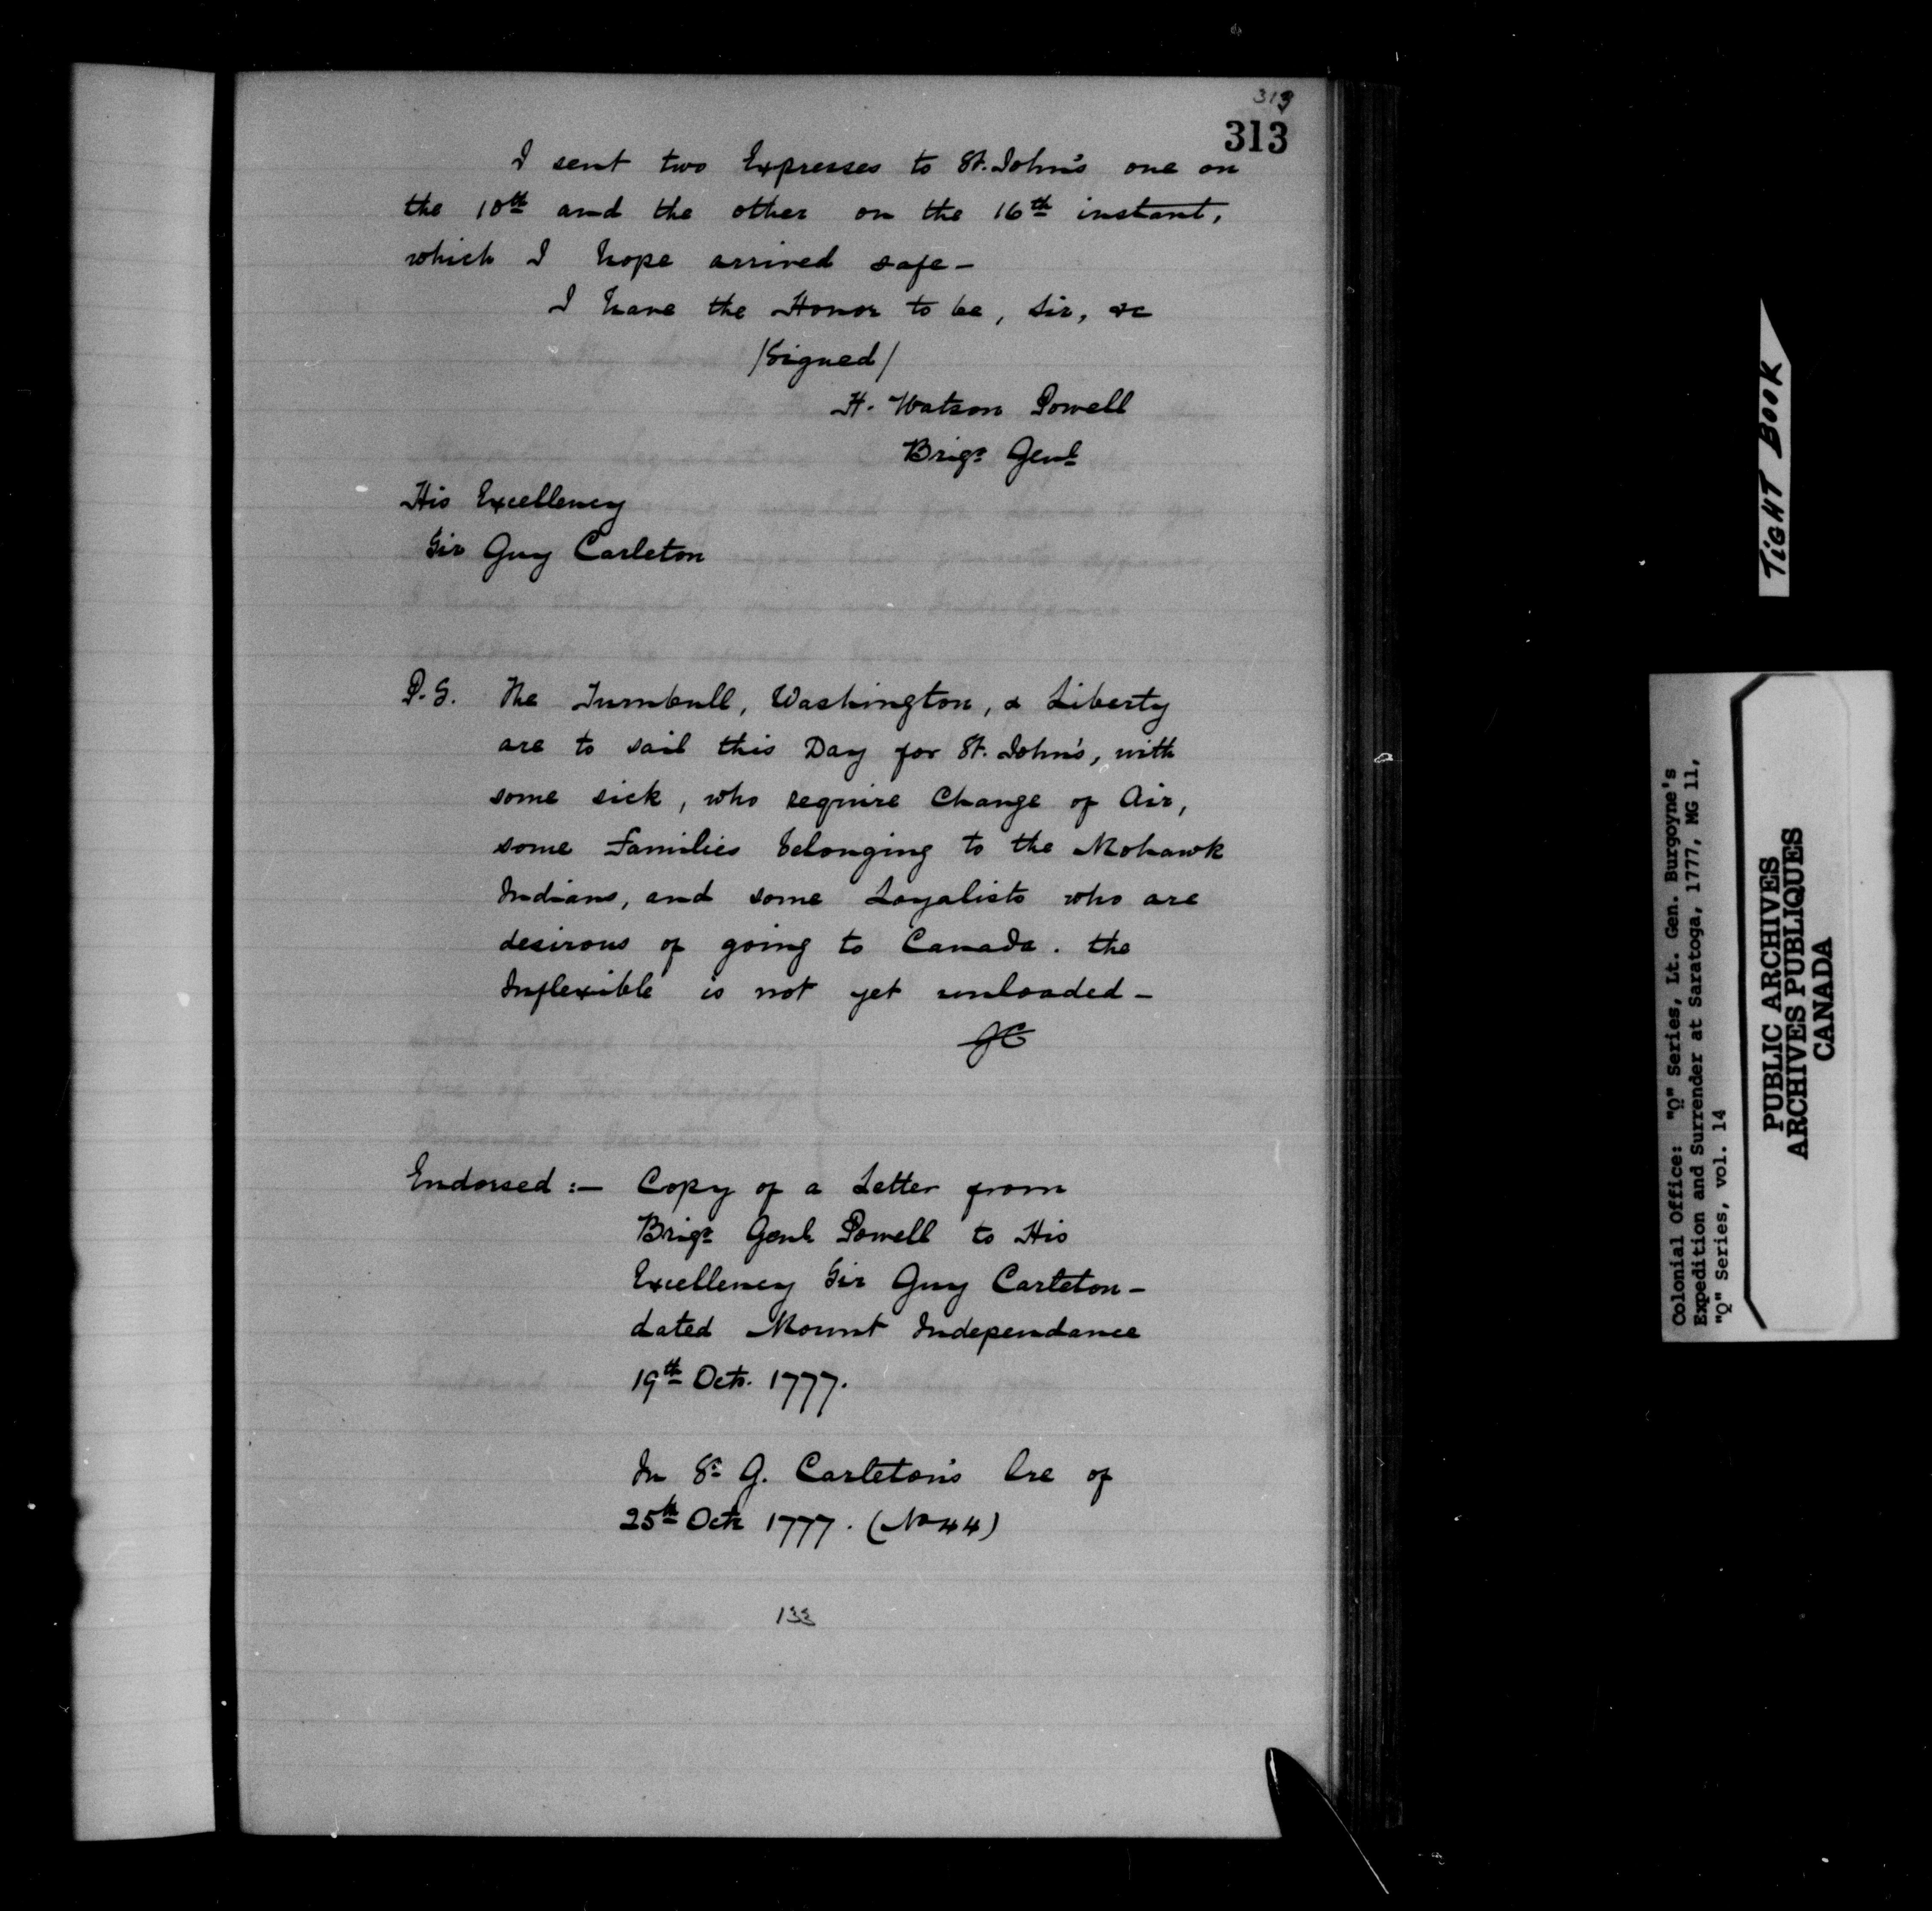 313
I sent two Expresses to St. John's one on
the 10th and the other on the 16th instant,
which I hope arrived safe—
I have the Honor to be, Sir, &c
/Signed/
H. Watson Powell
Brigr Genl
His Excellency
Sir Guy Carleton
P.S. The Turnbull, Washington, & Liberty
are to sail this Day for St. John's, with
some sick, who require Change of Air,
some Families belonging to the Mohawk
Indians, and some Loyalists who are
desirous of going to Canada. the
Inflexible is not yet unloaded—
GC
Endorsed:— Copy of a Letter from
Brigr Genl Powell to His
Excellency Sir Guy Carleton—
dated Mount Independance
19th Octr. 1777.
In Sr G. Carleton's Lre of
25th Octr 1777. (No 44)
TIGHT BOOK
Colonial Office: "Q" Series, Lt. Gen. Burgoyne's
Expedition and Surrender at Saratoga, 1777, MG 11,
"Q" Series, vol. 14
PUBLIC ARCHIVES
ARCHIVES PUBLIQUES
CANADA